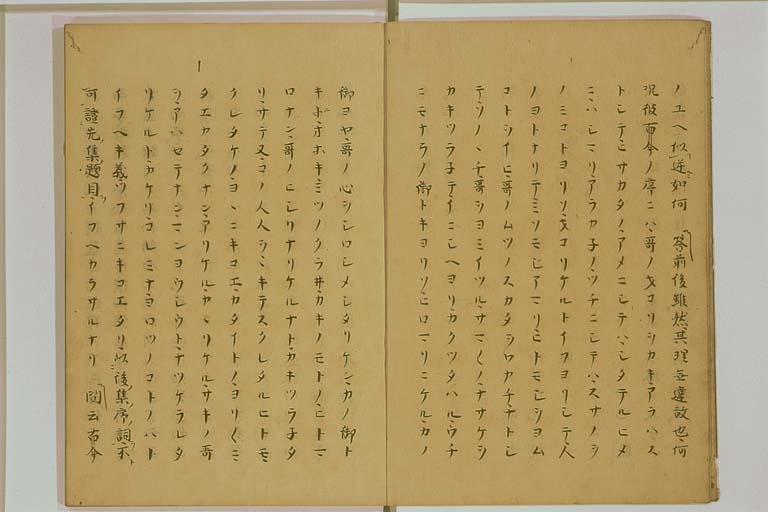 ノユヘ似逆如何 答前後雖然其理無違故也何
況彼古今ノ序ニハ哥ノヲコリヲカキアラハス
トシテヒサカタノアメニシテハシタテルヒメ
ニハシマリアラカ子ノツチニシテハスサノヲ
ノミコトヨリソヲコリケルトイフヨリシテ人
ノヨトナリテミソモシアマリヒトモシヲヨム
コトヲイヒ哥ノムツノスカタヲワカチナトシ
テソノヽチ哥ヲヨミイツルサマ〳〵ノナサケヲ
カキツラ子テイニシヘヨリカクツタハルウチ
ニモナラノ御トキヨリソヒロマリニケルカノ
御ヨヤ哥ノ心ヲシロシメシタリケンカノ御ト
キオホキミツノクラ井カキノモトノヒトマ
ロナン哥ノヒシリナリケルナトカキツラ子タ
リサテ又コノ人人ヲヽキテスクレタルヒトモ
クレタケノヨヽニキコエカタイトノヨリ〳〵ニ
タエカタクナンアリケルカヽリケルサキノ哥
ヲアハセテナンマンヨウシウトナツケラレタ
リケルトカケリコレミナヨロツノコトノハト
イフヘキ義ツフサニキコエタリ以後集序詞不
可證先集題目イフヘカラサルナリ 問云古今